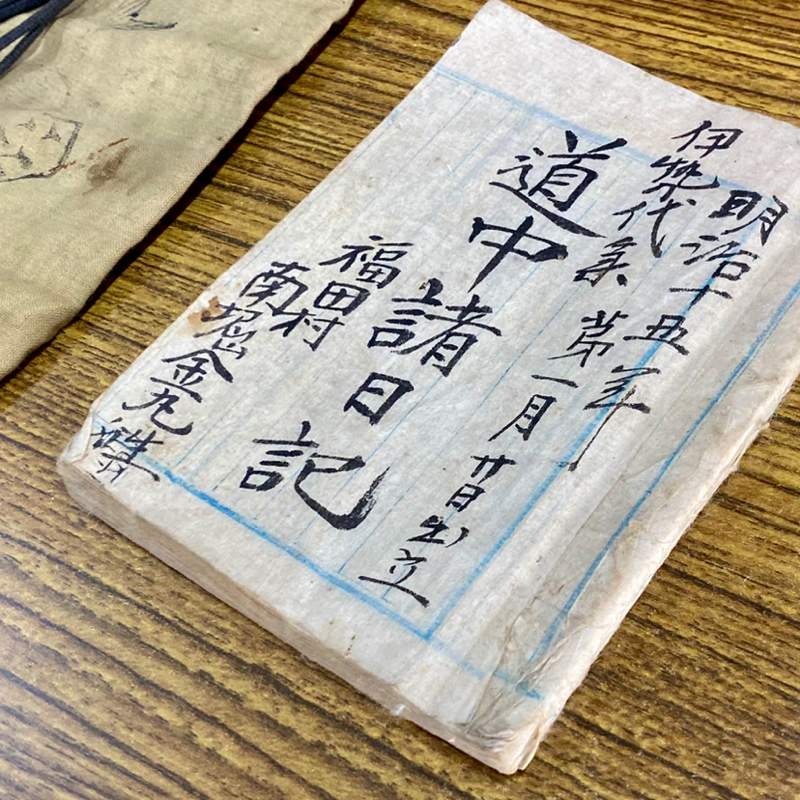 明治十丑年
伊勢代参 第一月廿日出立
道中諸日記
福田村
南堀金九